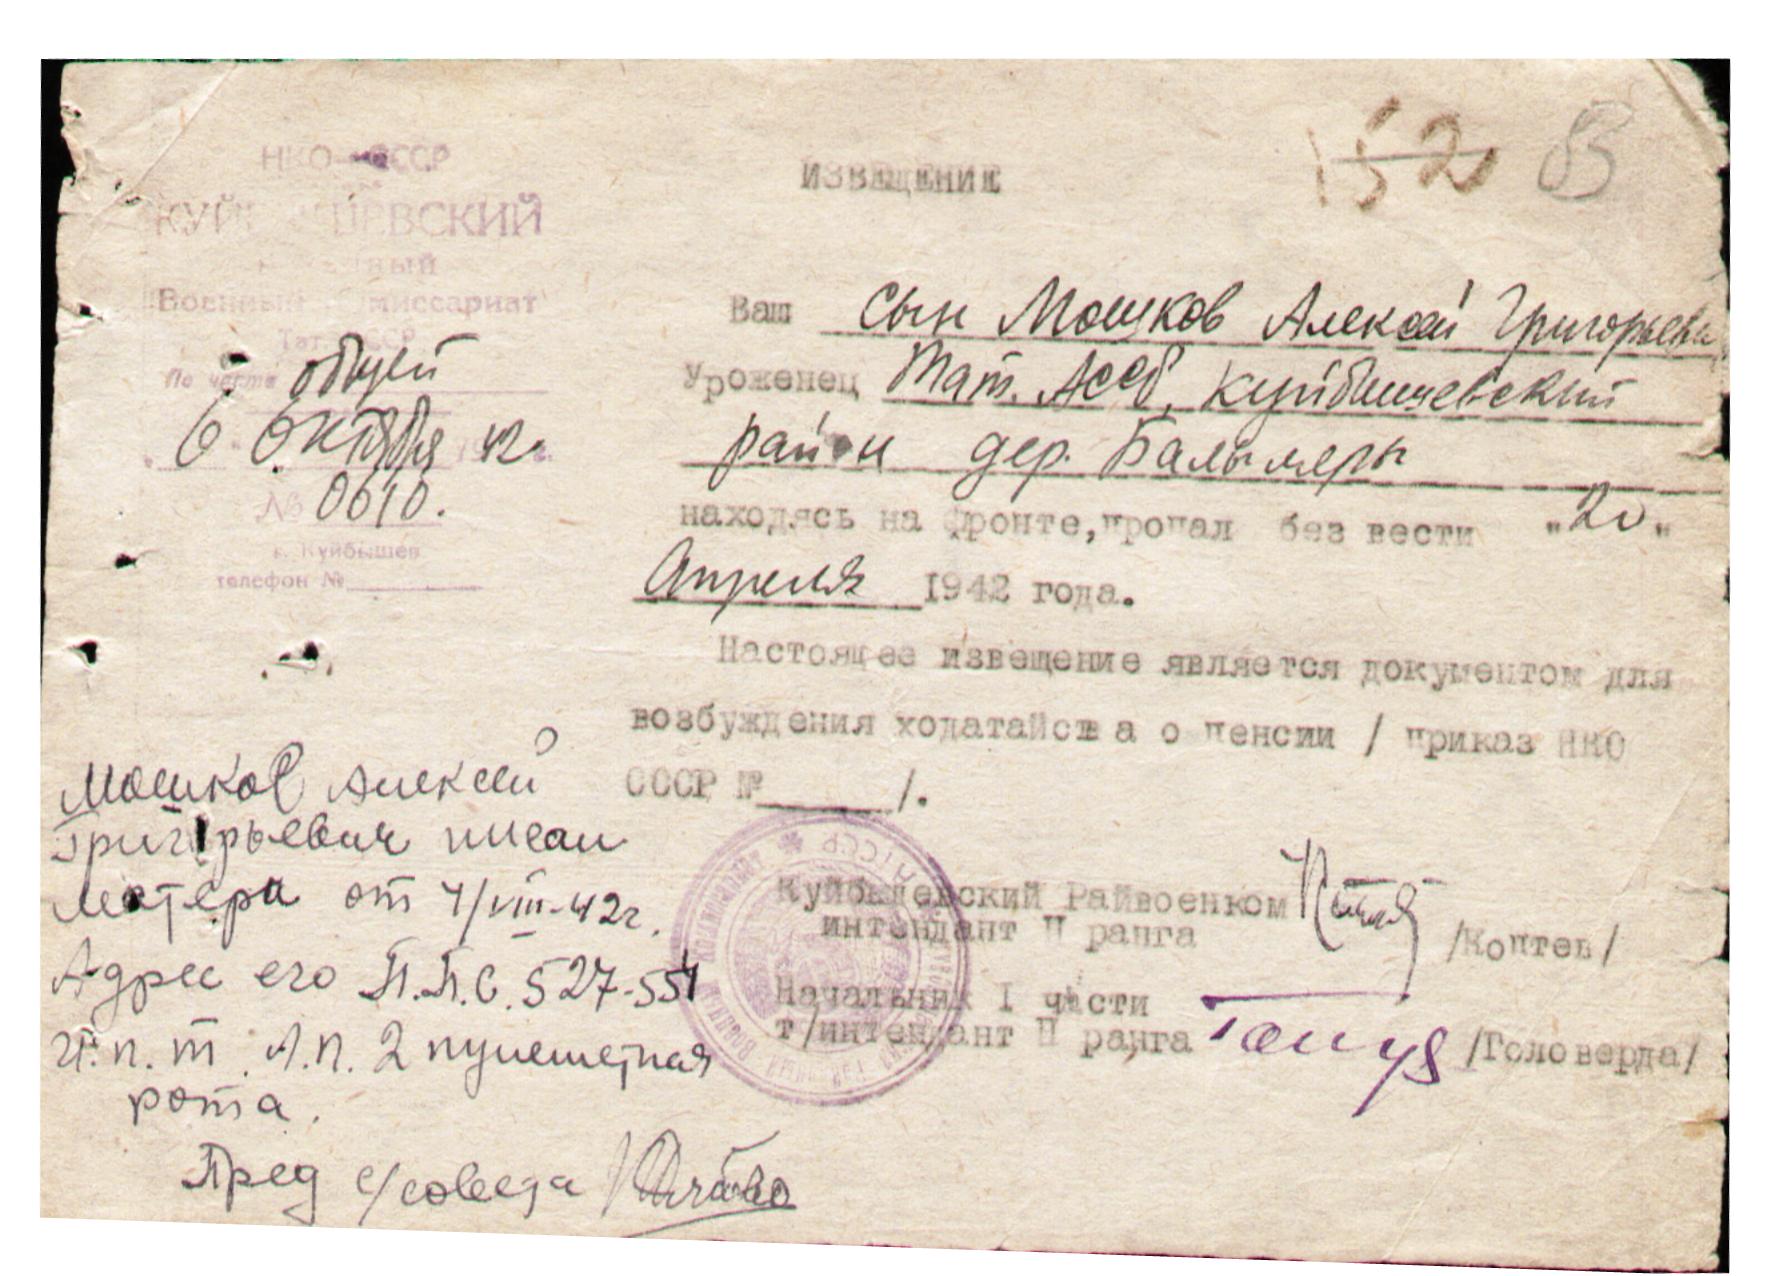 152 83
НКО СССР
КУЙБЫШЕВСКИЙ
Военный Комиссариат
Тат. ССР
По части общей
6 Октября 1942 г.
№ 0610.
г. Куйбышев
телефон №
ИЗВЕЩЕНИЕ
Ваш сын Мошков Алексей Григорьеви
Уроженец Тат. Асср, Куйбышевский
район дер. Балымеры
находясь на фронте, пропал без вести "20"
Апреля 1942 года.
Настоящее извещение является документом для
возбуждения ходатайства о пенсии / приказ НКО
СССР № /.
Куйбышевский Райвоенком /Коптев/
интендант II ранга
Начальник I части
т/интендант II ранга /Головерда/
Мошков Алексей
Григорьевич писал
матери от 4/VIII-42г.
Адрес его П.П.С. 527-554
п. т. А.п. 2 пулеметная
рота.
Пред с/совета